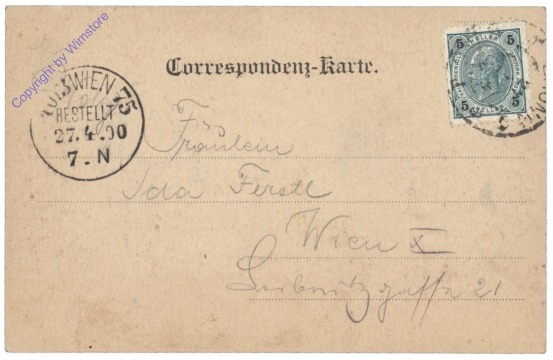 Copyright by Wimstore
Correspondenz-Karte.
WIEN 75
BESTELLT
27.4.00
7.N
5 5
HELLER
5 5
Fräulein
Ida Ferstl
Wien X
Leibnitzgasse 21